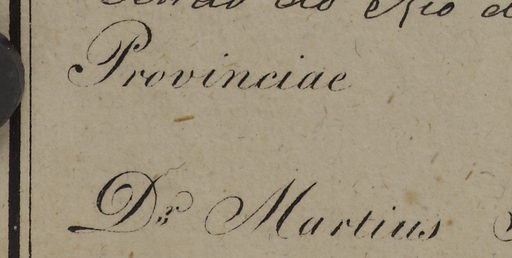 do Rio d
Provinciae
Dr. Martius